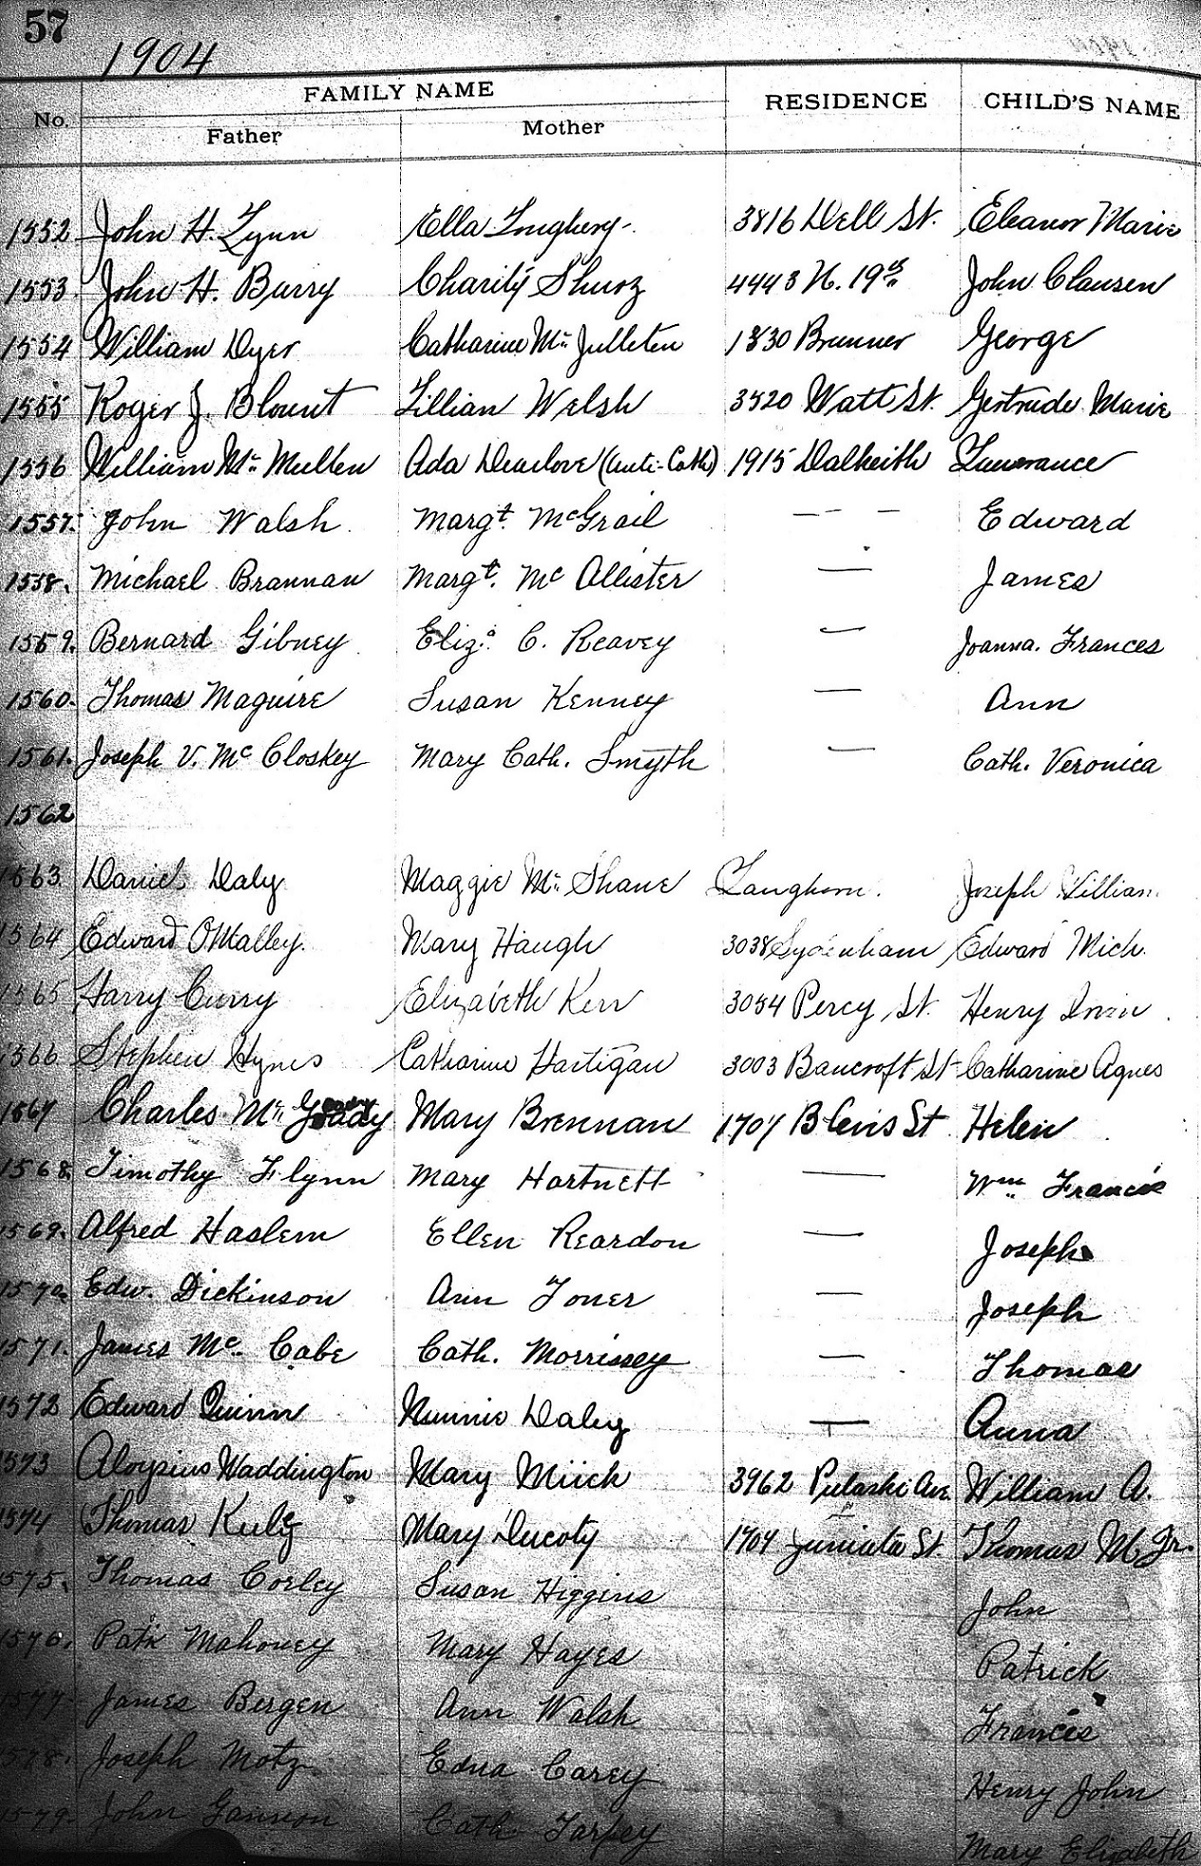 57
1904
FAMILY NAME
RESIDENCE
CHILD'S NAME
No.
Father
Mother
1552 John H. Lynn Ella Loughery. 3816 Dell St. Eleanor Marie
1553. John H. Burry Charity Shuoz 4443 N. 19th John Clausen
1554 William Dyer Catharine Mc 1830 Brunner George
1555 Roger J. Blount Lillian Welsh 3520 Watt St. Gertrude Marie
1556 William Mc Mullen Ada Dearlove (Anti-Cath) 1915 Dalkeith Lawrance
1557. John Walsh Margt. McGrail — — — Edward
1558. Michael Brannan Margt. Mc Allister — James
1559. Bernard Gibney Eliz.a C. Reavey — Joanna. Frances
1560. Thomas Maguire Susan Kenney — Ann
1561. Joseph V. Mc Closkey Mary Cath. Smyth — Cath. Veronica
1562
1563 Daniel Daly Maggie Mc Shane Langhorn. Joseph William
1564 Edward O'Malley. Mary Haugh 3038 Sydenham Edward Mich.
1565 Harry Curry Elizabeth Kerr 3054 Percy St. Henry Irvin
1566 Stephen Hynes Catharine Hartigan 3003 Bancroft St Catharine Agnes
1567 Charles Mc Grady Mary Brennan 1707 Blavis St Helen
1568. Timothy Flynn Mary Hartnett — Wm Francis
1569. Alfred Haslem Ellen Reardon — Joseph
1570. Edw. Dickinson Ann Toner — Joseph
1571. James Mc. Cabe Cath. Morrissey — Thomas
1572 Edward Quinn Nannie Daley — Anna
1573 Aloysius Waddington Mary Miich 3962 Pulaski Ave William A.
1574 Thomas Kiely Mary Ducoty 1707 Juniata St. Thomas M Jr.
1575. Thomas Corley Susan Higgins John
1576. Patk Mahoney Mary Hayes Patrick
1577. James Bergen Ann Walsh Francis
1578. Joseph Motz Edna Carey Henry John
1579. John Gannon Cath. Tarpey Mary Elizabeth